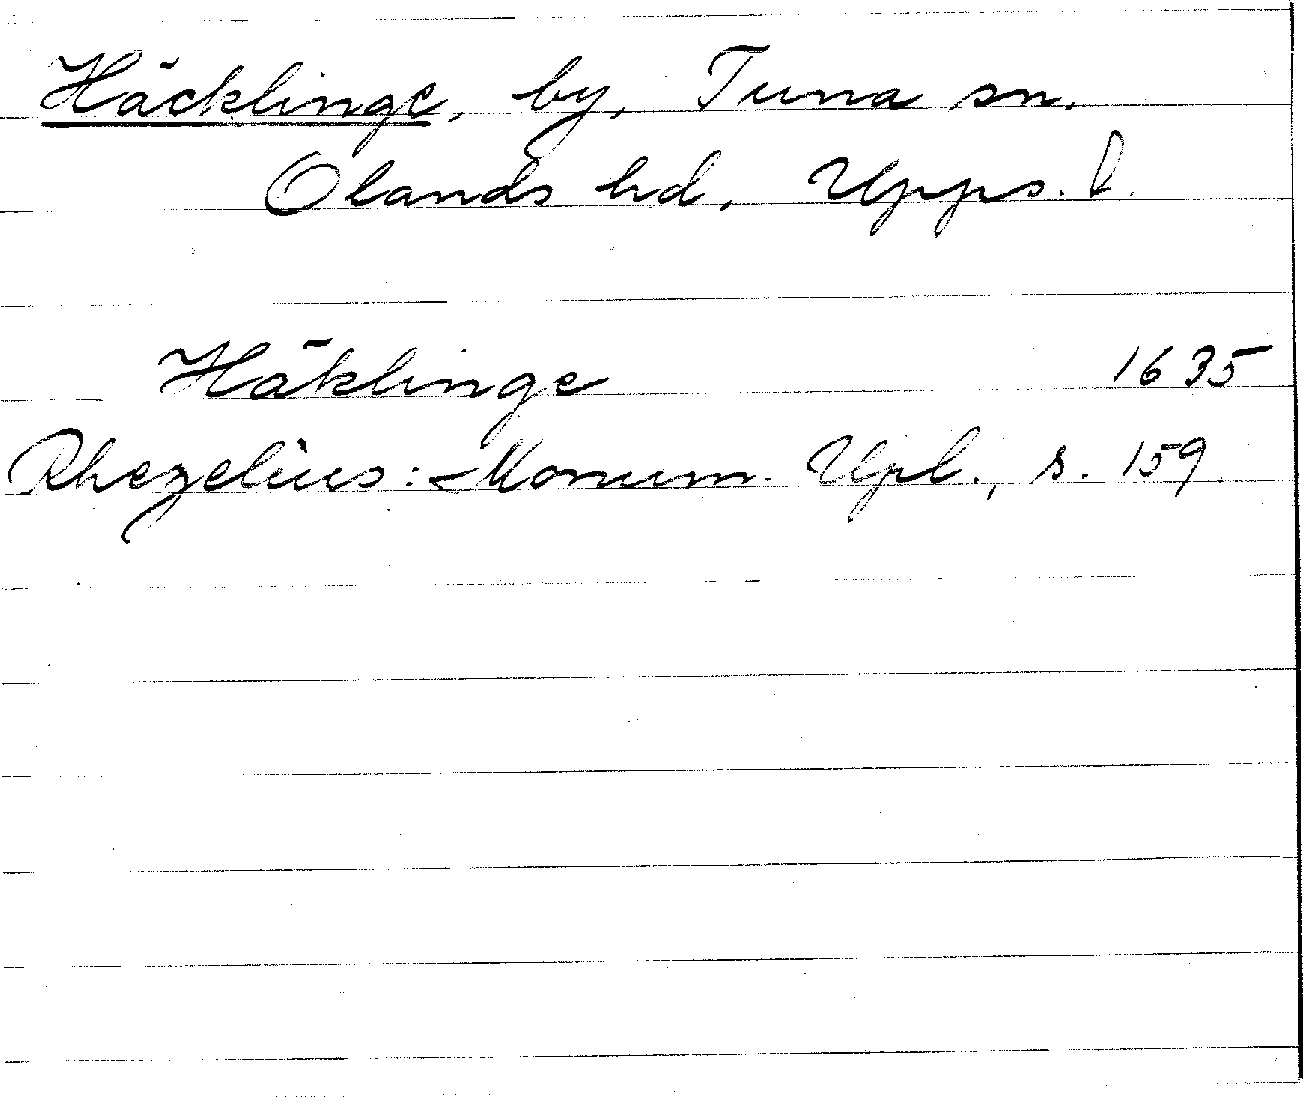 Häcklinge, by, Tuna sn.
Olands hd, Upps. l.
Häklinge 1635
Rhezelius: Monum. Upl., s. 159.